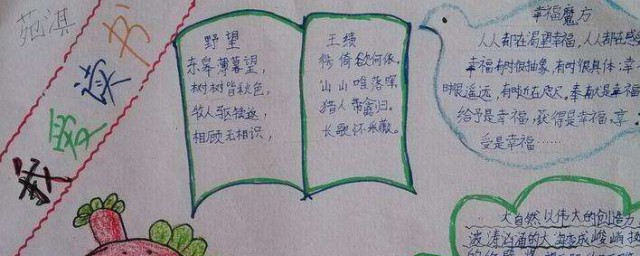 淇
我爱读书
野望
东皋薄暮望，
树树皆秋色，
牧人驱犊返，
相顾无相识，
王绩
徙倚欲何依。
山山唯落晖。
猎人带禽归。
长歌怀采薇。
幸福魔方
人人都在渴望幸福，人人都在感
幸福有时很抽象，有时很具体；幸
时很遥远，有时近在咫尺。奉献是幸福
给予是幸福，获得是幸福，享
受是幸福……
大自然以伟大的创造力
波涛汹涌的大海变成峻峭